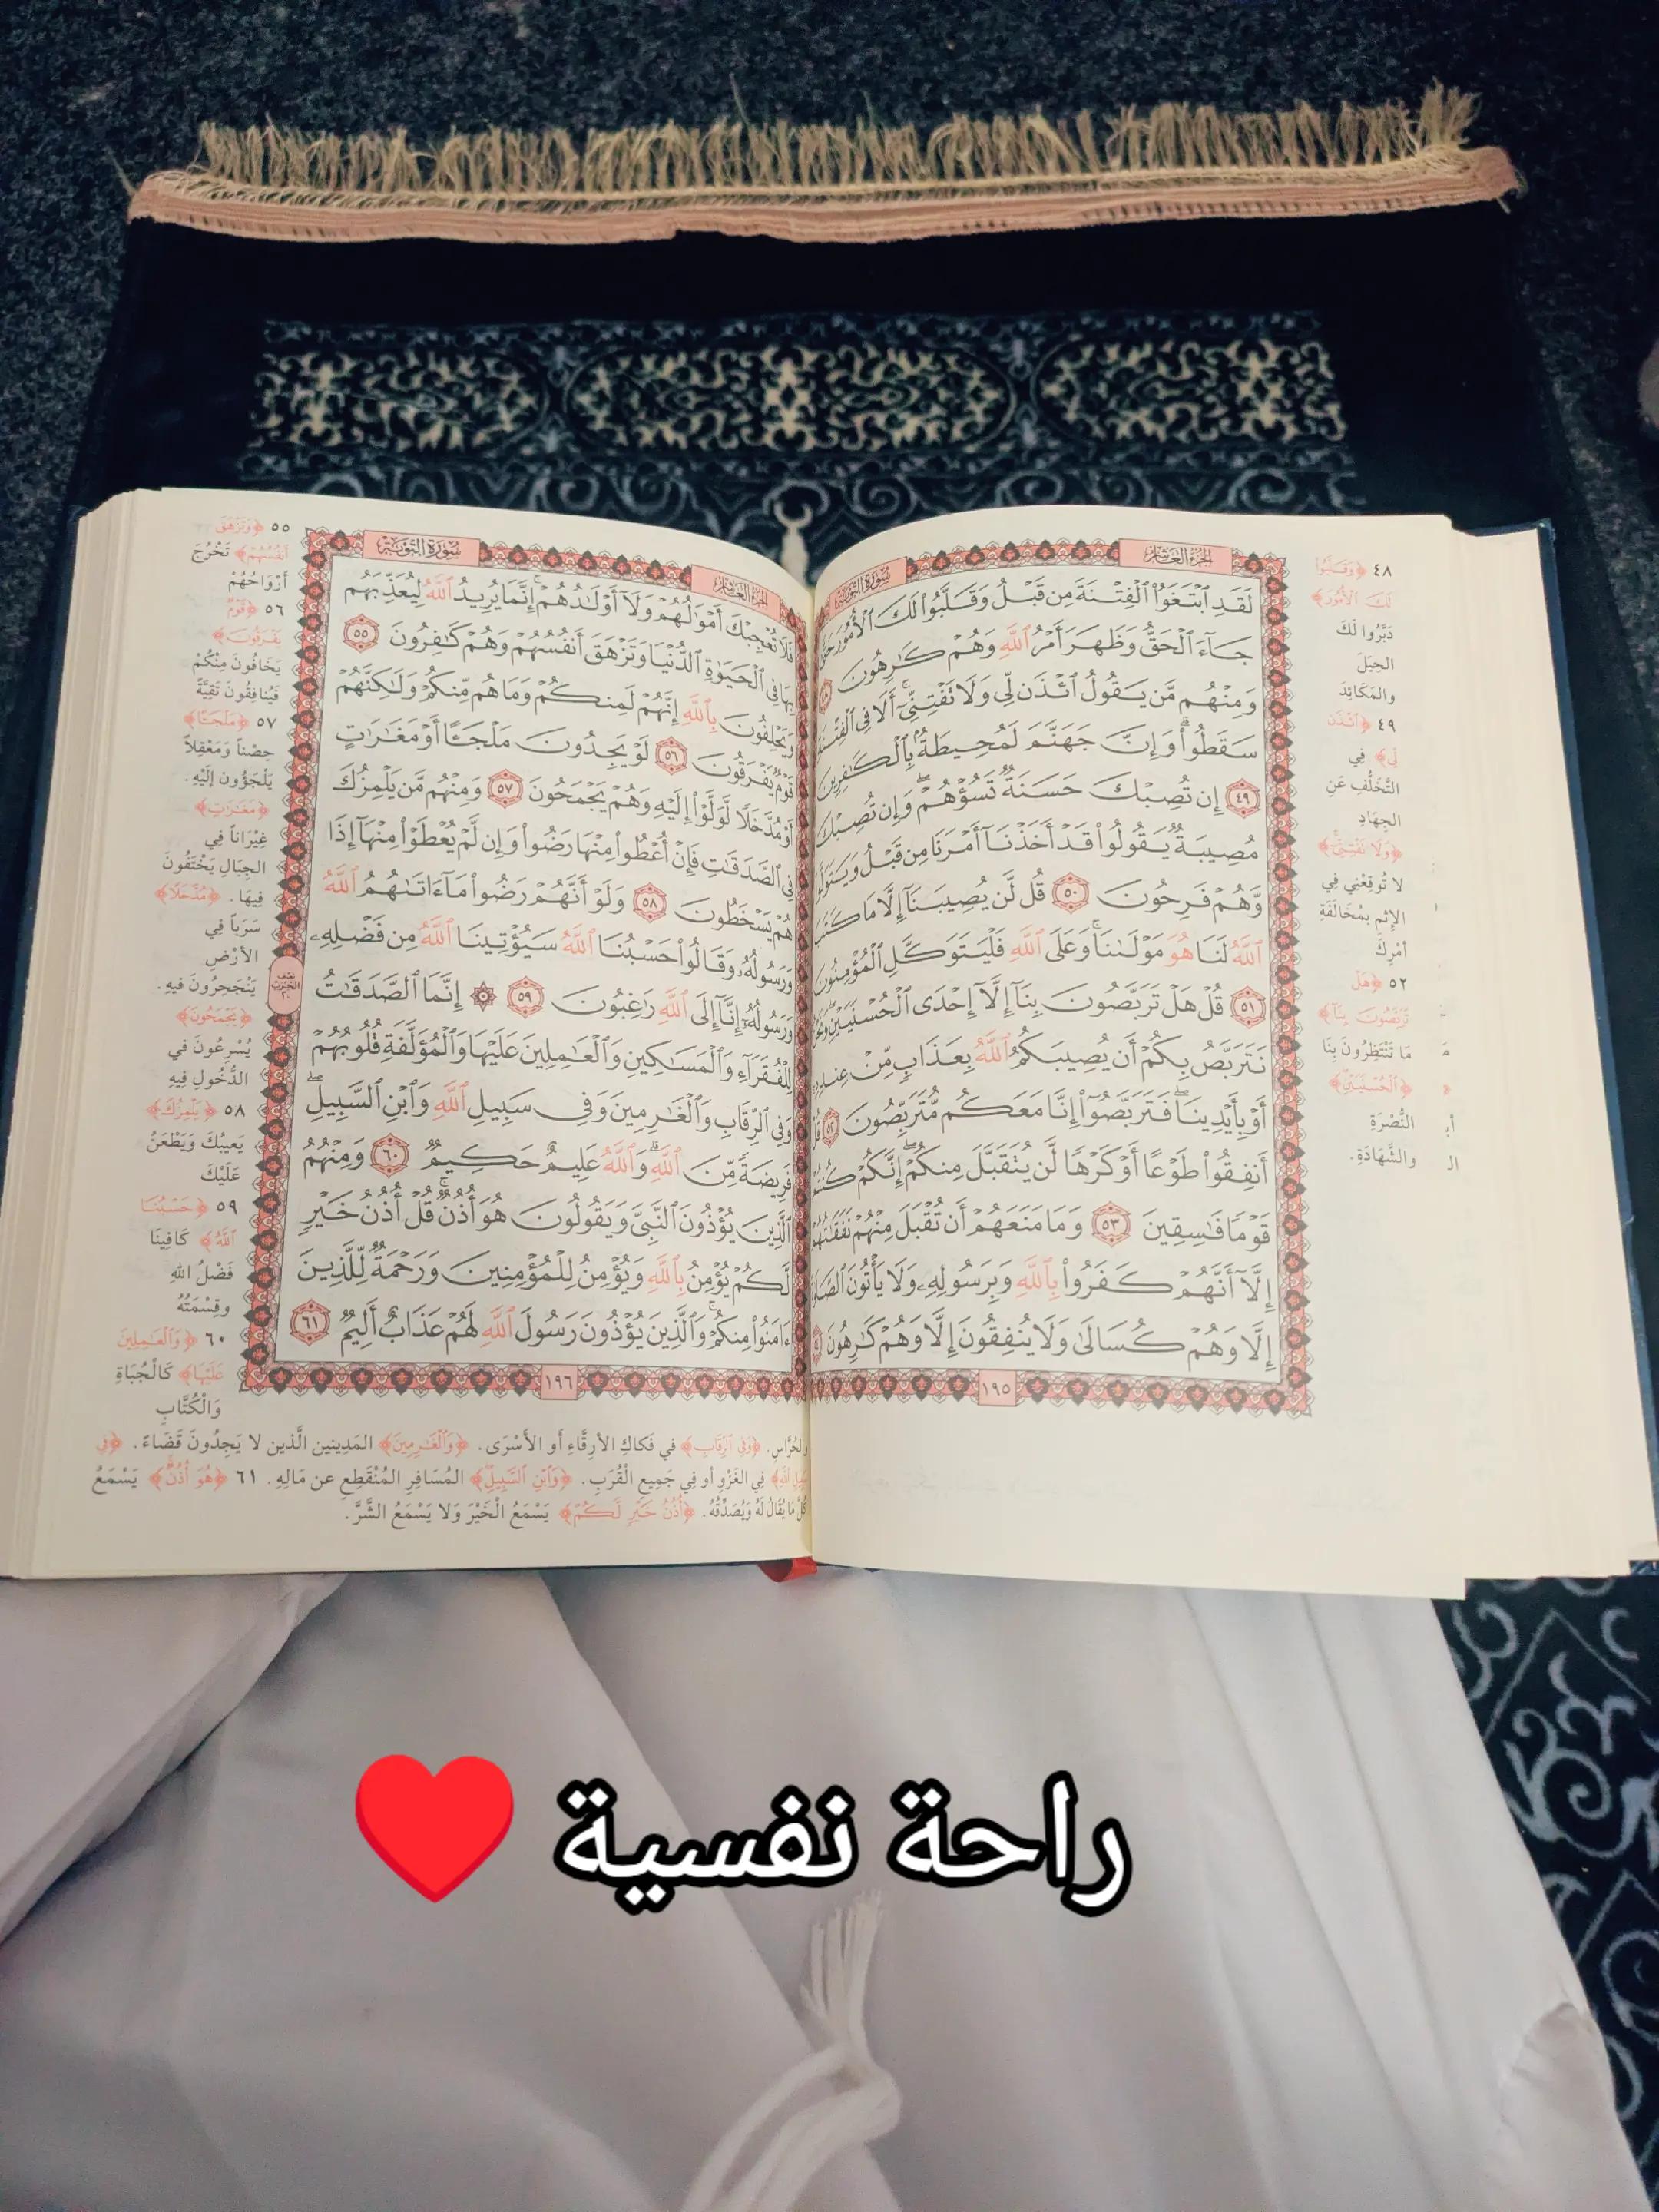 سُورَةُ التَّوْبَةِ
الجزء العاشر
لَقَدِ ٱبْتَغَوُا۟ ٱلْفِتْنَةَ مِن قَبْلُ وَقَلَّبُوا۟ لَكَ ٱلْأُمُورَ حَتَّىٰ
جَآءَ ٱلْحَقُّ وَظَهَرَ أَمْرُ ٱللَّهِ وَهُمْ كَـٰرِهُونَ ٤٨
وَمِنْهُم مَّن يَقُولُ ٱئْذَن لِّى وَلَا تَفْتِنِّىٓ ۚ أَلَا فِى ٱلْفِتْنَةِ
سَقَطُوا۟ ۗ وَإِنَّ جَهَنَّمَ لَمُحِيطَةٌۢ بِٱلْكَـٰفِرِينَ
٤٩ إِن تُصِبْكَ حَسَنَةٌ تَسُؤْهُمْ ۖ وَإِن تُصِبْكَ
مُصِيبَةٌ يَقُولُوا۟ قَدْ أَخَذْنَآ أَمْرَنَا مِن قَبْلُ وَيَتَوَلَّوا۟
وَّهُمْ فَرِحُونَ ٥٠ قُل لَّن يُصِيبَنَآ إِلَّا مَا كَتَبَ
ٱللَّهُ لَنَا هُوَ مَوْلَىٰنَا ۚ وَعَلَى ٱللَّهِ فَلْيَتَوَكَّلِ ٱلْمُؤْمِنُونَ
٥١ قُلْ هَلْ تَرَبَّصُونَ بِنَآ إِلَّآ إِحْدَى ٱلْحُسْنَيَيْنِ ۖ وَنَحْنُ
نَتَرَبَّصُ بِكُمْ أَن يُصِيبَكُمُ ٱللَّهُ بِعَذَابٍ مِّنْ عِندِهِۦٓ
أَوْ بِأَيْدِينَا ۖ فَتَرَبَّصُوٓا۟ إِنَّا مَعَكُم مُّتَرَبِّصُونَ ٥٢ قُلْ
أَنفِقُوا۟ طَوْعًا أَوْ كَرْهًا لَّن يُتَقَبَّلَ مِنكُمْ ۖ إِنَّكُمْ كُنتُمْ
قَوْمًا فَـٰسِقِينَ ٥٣ وَمَا مَنَعَهُمْ أَن تُقْبَلَ مِنْهُمْ نَفَقَـٰتُهُمْ
إِلَّآ أَنَّهُمْ كَفَرُوا۟ بِٱللَّهِ وَبِرَسُولِهِۦ وَلَا يَأْتُونَ ٱلصَّلَوٰةَ
إِلَّا وَهُمْ كُسَالَىٰ وَلَا يُنفِقُونَ إِلَّا وَهُمْ كَـٰرِهُونَ ٥٤
١٩٥
٤٨ ﴿وَقَلَّبُوا
لَكَ الْأُمُورَ﴾
دَبَّرُوا لَكَ
الحِيَلَ
والمَكَائِدَ
٤٩ ﴿ائْذَن
لِّي﴾ فِي
التَّخَلُّفِ عَنِ
الجِهَادِ
﴿وَلَا تَفْتِنِّي﴾
لا تُوقِعْنِي فِي
الإِثْمِ بِمُخَالَفَةِ
أَمْرِكَ
٥٢ ﴿هَلْ
تَرَبَّصُونَ بِنَآ﴾
مَا تَنْتَظِرُونَ بِنَا
﴿الْحُسْنَيَيْنِ﴾
النُّصْرَةِ
والشَّهَادَةِ.
الجزء العاشر
سُورَةُ التَّوْبَةِ
فَلَا تُعْجِبْكَ أَمْوَٰلُهُمْ وَلَآ أَوْلَـٰدُهُمْ ۚ إِنَّمَا يُرِيدُ ٱللَّهُ لِيُعَذِّبَهُم
بِهَا فِى ٱلْحَيَوٰةِ ٱلدُّنْيَا وَتَزْهَقَ أَنفُسُهُمْ وَهُمْ كَـٰفِرُونَ ٥٥
وَيَحْلِفُونَ بِٱللَّهِ إِنَّهُمْ لَمِنكُمْ وَمَا هُم مِّنكُمْ وَلَـٰكِنَّهُمْ
قَوْمٌ يَفْرَقُونَ ٥٦ لَوْ يَجِدُونَ مَلْجَـًٔا أَوْ مَغَـٰرَٰتٍ
أَوْ مُدَّخَلًا لَّوَلَّوْا۟ إِلَيْهِ وَهُمْ يَجْمَحُونَ ٥٧ وَمِنْهُم مَّن يَلْمِزُكَ
فِى ٱلصَّدَقَـٰتِ فَإِنْ أُعْطُوا۟ مِنْهَا رَضُوا۟ وَإِن لَّمْ يُعْطَوْا۟ مِنْهَآ إِذَا
هُمْ يَسْخَطُونَ ٥٨ وَلَوْ أَنَّهُمْ رَضُوا۟ مَآ ءَاتَىٰهُمُ ٱللَّهُ
وَرَسُولُهُۥ وَقَالُوا۟ حَسْبُنَا ٱللَّهُ سَيُؤْتِينَا ٱللَّهُ مِن فَضْلِهِۦ
وَرَسُولُهُۥٓ إِنَّآ إِلَى ٱللَّهِ رَٰغِبُونَ ٥٩ ۞ إِنَّمَا ٱلصَّدَقَـٰتُ
لِلْفُقَرَآءِ وَٱلْمَسَـٰكِينِ وَٱلْعَـٰمِلِينَ عَلَيْهَا وَٱلْمُؤَلَّفَةِ قُلُوبُهُمْ
وَفِى ٱلرِّقَابِ وَٱلْغَـٰرِمِينَ وَفِى سَبِيلِ ٱللَّهِ وَٱبْنِ ٱلسَّبِيلِ ۖ
فَرِيضَةً مِّنَ ٱللَّهِ ۗ وَٱللَّهُ عَلِيمٌ حَكِيمٌ ٦٠ وَمِنْهُمُ
ٱلَّذِينَ يُؤْذُونَ ٱلنَّبِىَّ وَيَقُولُونَ هُوَ أُذُنٌ ۚ قُلْ أُذُنُ خَيْرٍ
لَّكُمْ يُؤْمِنُ بِٱللَّهِ وَيُؤْمِنُ لِلْمُؤْمِنِينَ وَرَحْمَةٌ لِّلَّذِينَ
ءَامَنُوا۟ مِنكُمْ ۚ وَٱلَّذِينَ يُؤْذُونَ رَسُولَ ٱللَّهِ لَهُمْ عَذَابٌ أَلِيمٌ ٦١
١٩٦
نصف الحزب ٢٠
٥٥ ﴿وَتَزْهَقَ
أَنفُسُهُمْ﴾ تَخْرُجَ
أَرْوَاحُهُمْ
٥٦ ﴿قَوْمٌ
يَفْرَقُونَ﴾
يَخَافُونَ مِنْكُمْ
فَيُنَافِقُونَ تَقِيَّةً
٥٧ ﴿مَلْجَئًا﴾
حِصْناً وَمَعْقِلاً
يَلْجَؤُونَ إِلَيْهِ.
﴿مَغَارَاتٍ﴾
غِيْرَاناً فِي
الجِبَالِ يَخْتَفُونَ
فِيهَا. ﴿مُدَّخَلًا﴾
سَرَباً فِي
الأَرْضِ
يَنْجَحِرُونَ فيهِ.
﴿يَجْمَحُونَ﴾
يُسْرِعُونَ في
الدُّخُولِ فِيهِ
٥٨ ﴿يَلْمِزُكَ﴾
يَعِيبُكَ وَيَطْعَنُ
عَلَيْكَ
٥٩ ﴿حَسْبُنَا
اللَّهُ﴾ كَافِينَا
فَضْلُ اللهِ
وقِسْمَتُهُ
٦٠ ﴿وَالْعَامِلِينَ
عَلَيْهَا﴾ كَالْجُبَاةِ
وَالْكُتَّابِ
والحُرَّاسِ. ﴿وَفِي الرِّقَابِ﴾ في فَكَاكِ الأَرِقَّاءِ أَوِ الأَسْرَى. ﴿وَالْغَارِمِينَ﴾ المَدِينِين الَّذين لا يَجِدُونَ قَضَاءً. ﴿وَفِي
سَبِيلِ اللَّهِ﴾ فِي الغَزْوِ أو فِي جَمِيعِ الْقُرَبِ. ﴿وَابْنِ السَّبِيلِ﴾ المُسَافِرِ المُنْقَطِعِ عن مَالِهِ. ٦١ ﴿هُوَ أُذُنٌ﴾ يَسْمَعُ
كُلَّ مَا يُقَالُ لَهُ وَيُصَدِّقُهُ. ﴿أُذُنُ خَيْرٍ لَّكُمْ﴾ يَسْمَعُ الْخَيْرَ وَلا يَسْمَعُ الشَّرَّ.
راحة نفسية ❤️